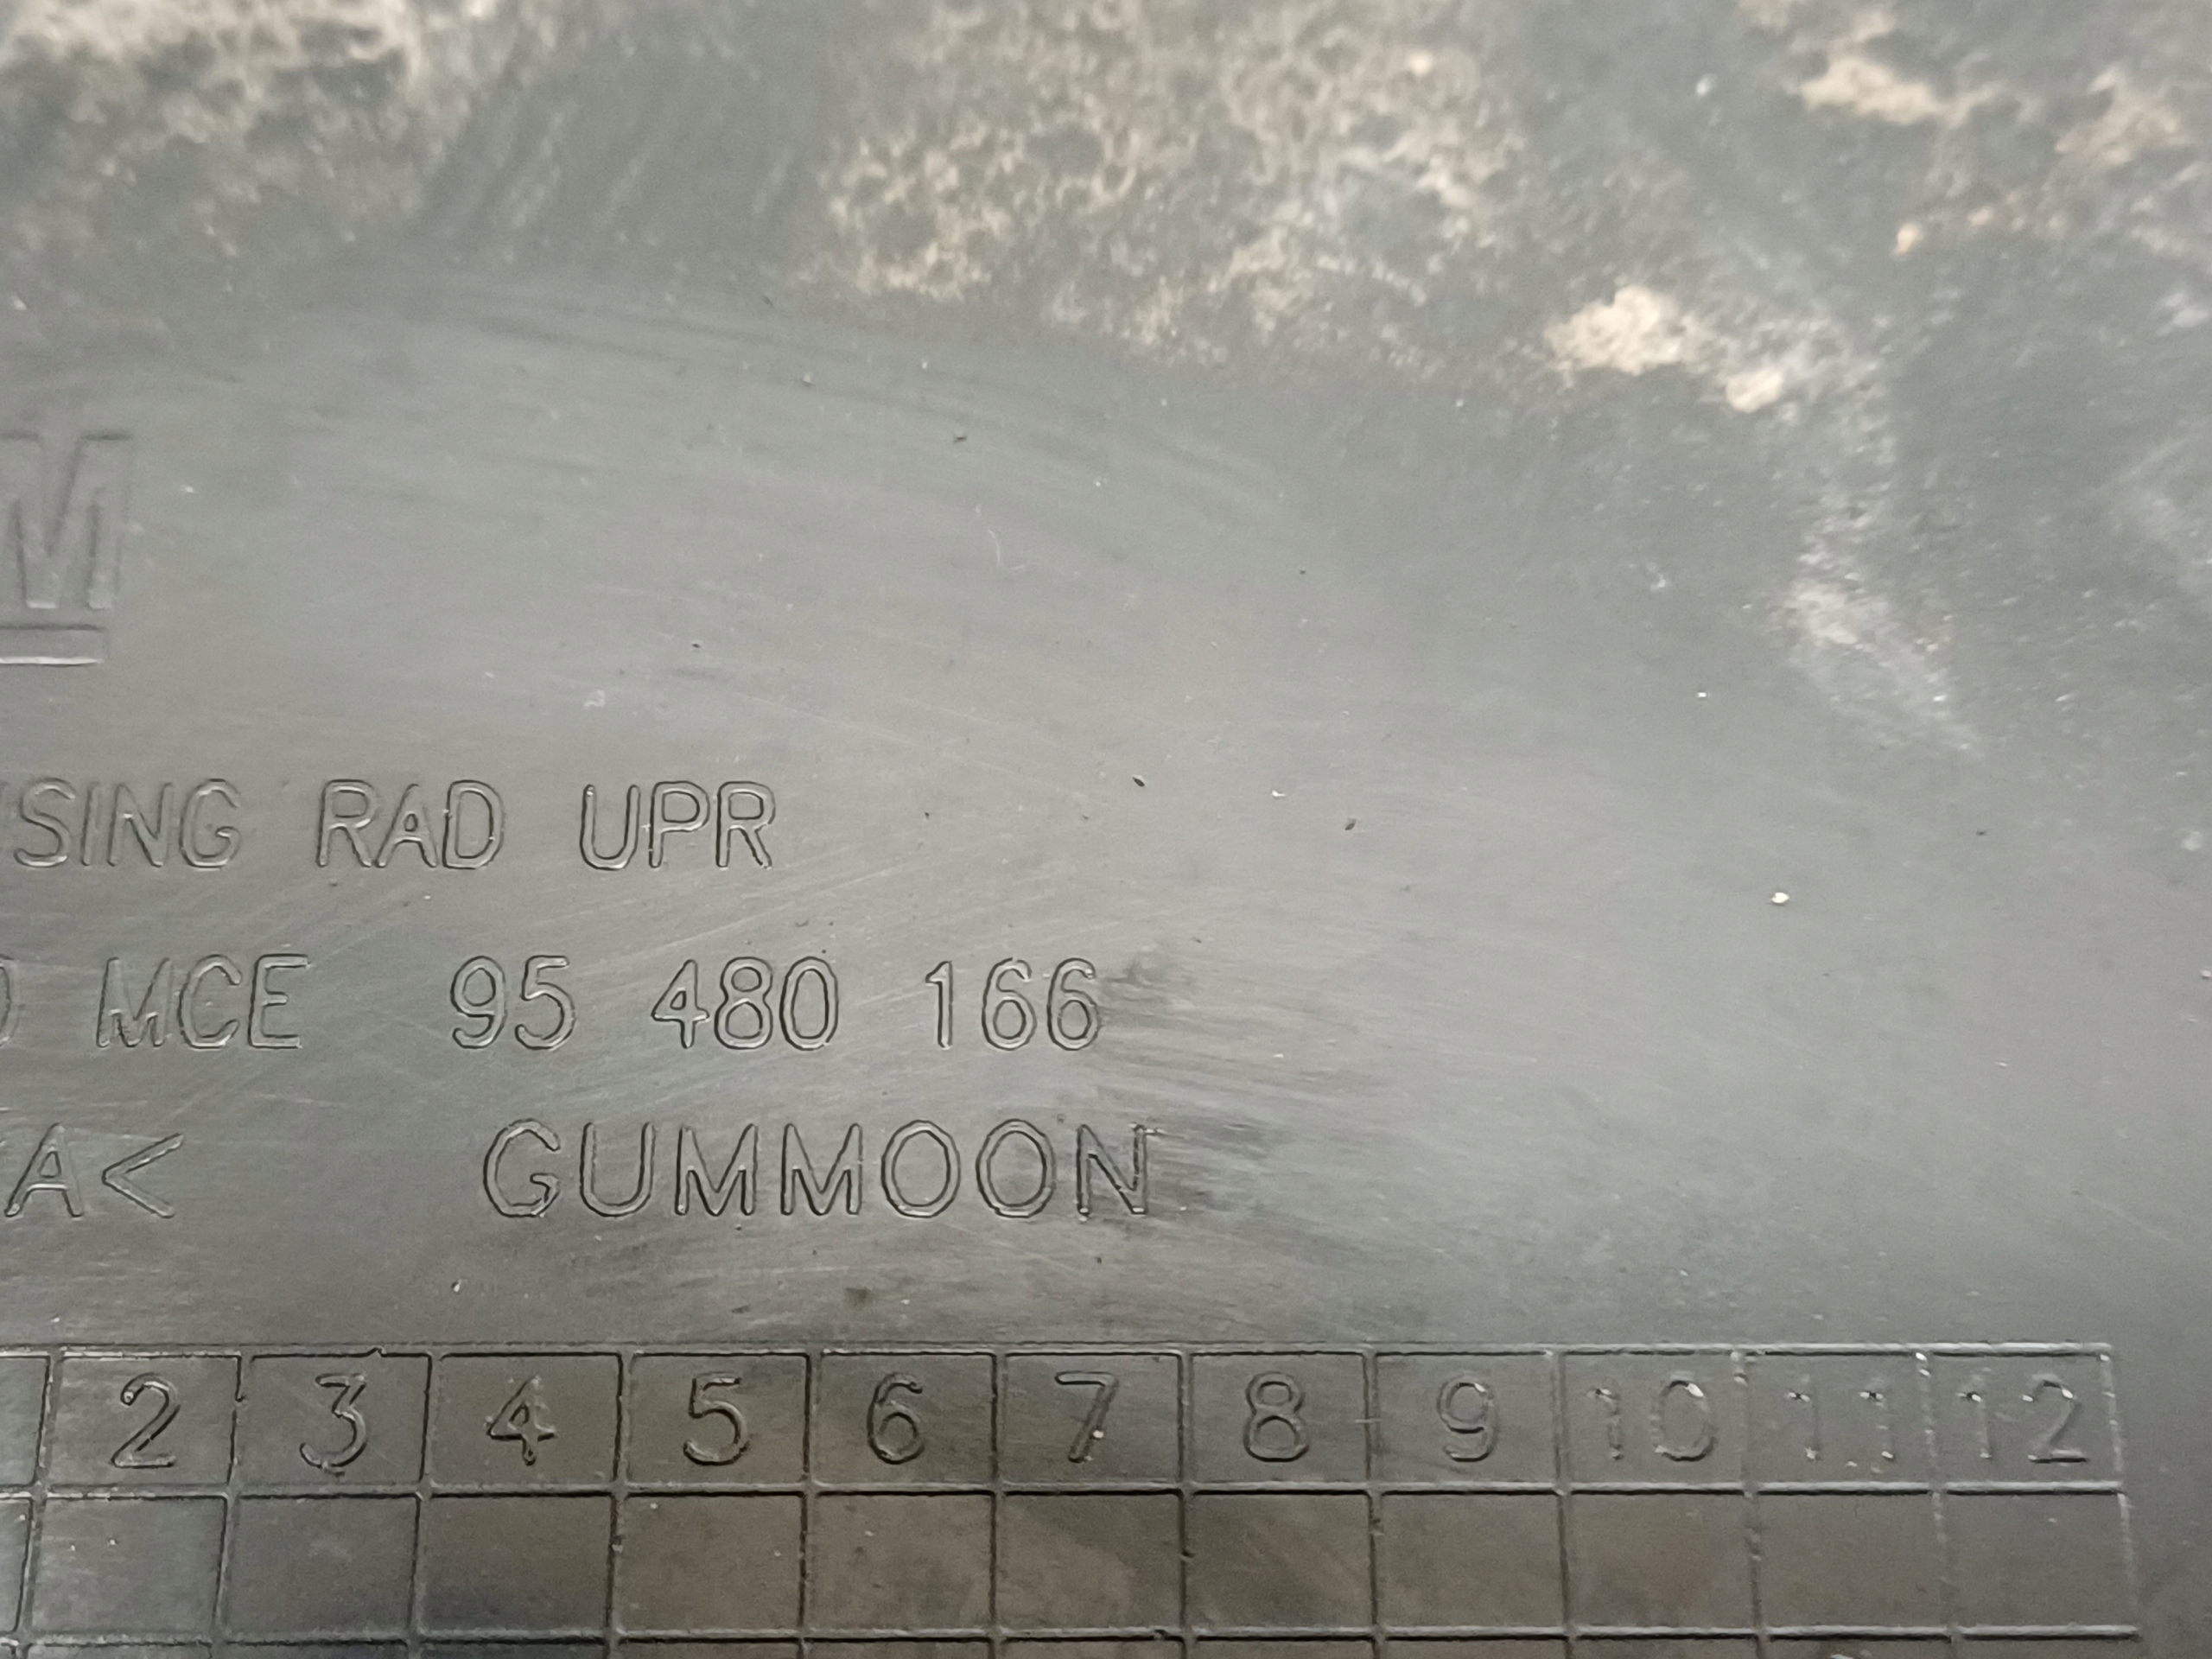 M
SING RAD UPR
MCE 95 480 166
A< GUMMOON
2 3 4 5 6 7 8 9 10 11 12